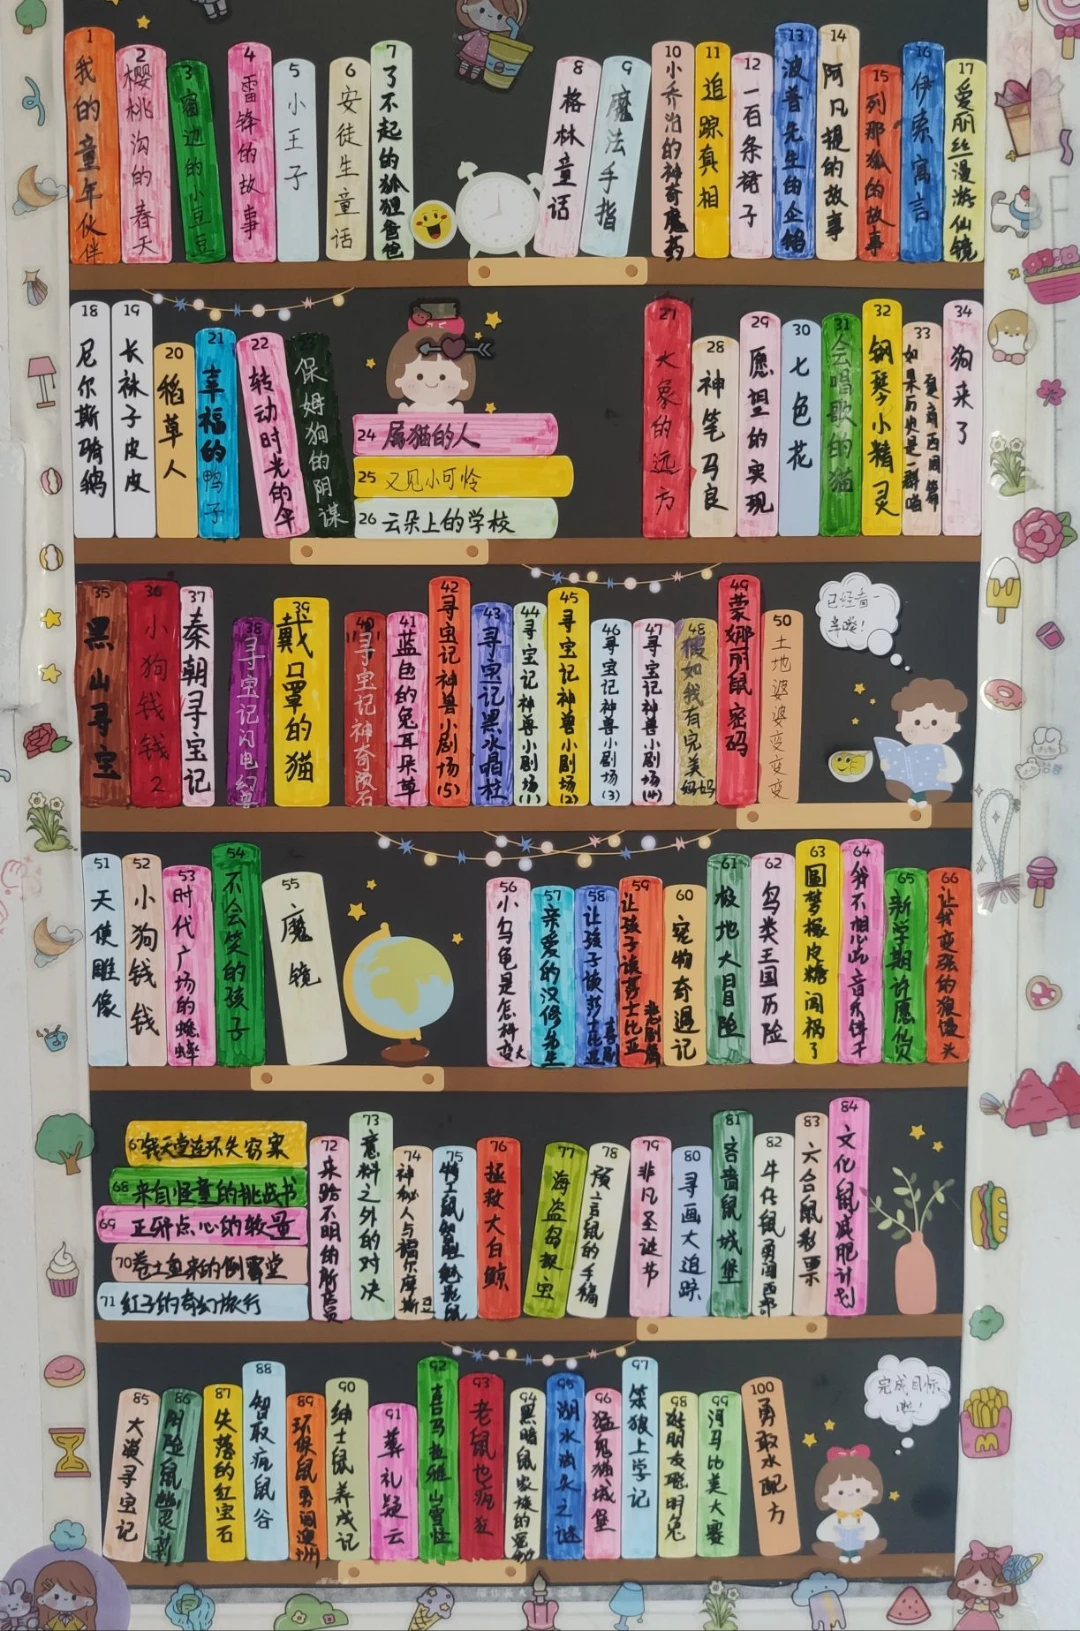 1 我的童年伙伴
2 樱桃沟的春天
3 窗边的小豆豆
4 雷锋的故事
5 小王子
6 安徒生童话
7 了不起的狐狸爸爸
8 格林童话
9 魔法手指
10 小乔治的神奇魔药
11 追踪真相
12 一百条裙子
13 波普先生的企鹅
14 阿凡提的故事
15 列那狐的故事
16 伊索寓言
17 爱丽丝漫游仙镜
18 尼尔斯骑鹅
19 长袜子皮皮
20 稻草人
21 幸福的鸭子
22 转动时光的伞
23 保姆狗的阴谋
24 属猫的人
25 又见小可怜
26 云朵上的学校
27 大象的远方
28 神笔马良
29 愿望的实现
30 七色花
31 会唱歌的猫
32 钢琴小精灵
33 如果历史是一群喵
34 狗来了
35 黑山寻宝
36 小狗钱钱2
37 秦朝寻宝记
38 寻宝记闪电幻兽
39 戴口罩的猫
40 寻宝记神奇陨石
41 蓝色的兔耳朵草
42 寻宝记神兽小剧场(5)
43 寻宝记黑水晶柱
44 寻宝记神兽小剧场(1)
45 寻宝记神兽小剧场(2)
46 寻宝记神兽小剧场(3)
47 寻宝记神兽小剧场(4)
48 假如我有完美妈妈
49 蒙娜丽鼠密码
50 土地婆婆变变变
已经看一半喽!
51 天使雕像
52 小狗钱钱
53 时代广场的蟋蟀
54 不会笑的孩子
55 魔镜
56 小乌龟是怎样变大
57 亲爱的汉修先生
58 让孩子读莎士比亚喜剧
59 让孩子读莎士比亚悲剧篇
60 宠物奇遇记
61 极地大冒险
62 鸟类王国历险
63 圆梦橡皮糖闯祸了
64 我不想当音乐饼干
65 新学期许愿伩
66 让我变强的狼馒头
67 钱天堂连环失窃案
68 来自怪童的挑战书
69 正邪点心的较量
70 卷土重来的倒霉堂
71 红子的奇幻旅行
72 来路不明的新店员
73 意料之外的对决
74 神秘人与福尔摩斯豆
75 特工鼠智胜魅影鼠
76 拯救大白鲸
77 海盗岛
78 预言鼠的手稿
79 非凡圣诞节
80 寻画大追踪
81 吝啬鼠城堡
82 牛仔鼠勇闯西部
83 六合鼠彩票
84 文化鼠减肥计划
85 大漠寻宝记
86 阴险鼠
87 失落的红宝石
88 智取疯鼠谷
89 环保鼠勇闯澳洲
90 绅士鼠养成记
91 葬礼疑云
92 喜马拉雅山雪怪
93 老鼠也疯狂
94 黑暗鼠家族的
95 湖水消失之谜
96 猛鬼猫城堡
97 笨狼上学记
98
99 河马比美大赛
100 勇敢水配方
完成目标啦!